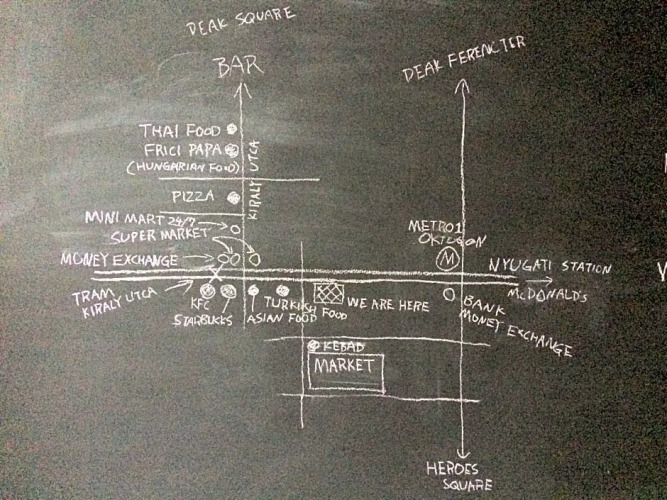 DEAK SQUARE
BAR
DEAK FERENCTER
THAI FOOD
FRICI PAPA
(HUNGARIAN FOOD)
KIRALY UTCA
PIZZA
MINI MART 24/7
SUPER MARKET
MONEY EXCHANGE
METRO1
OKTOGON
M
NYUGATI STATION
McDONALD'S
TRAM
KIRALY UTCA
KFC
STARBUCKS
ASIAN FOOD
TURKISH
FOOD
WE ARE HERE
BANK
MONEY EXCHANGE
KEBAD
MARKET
HEROES
SQUARE